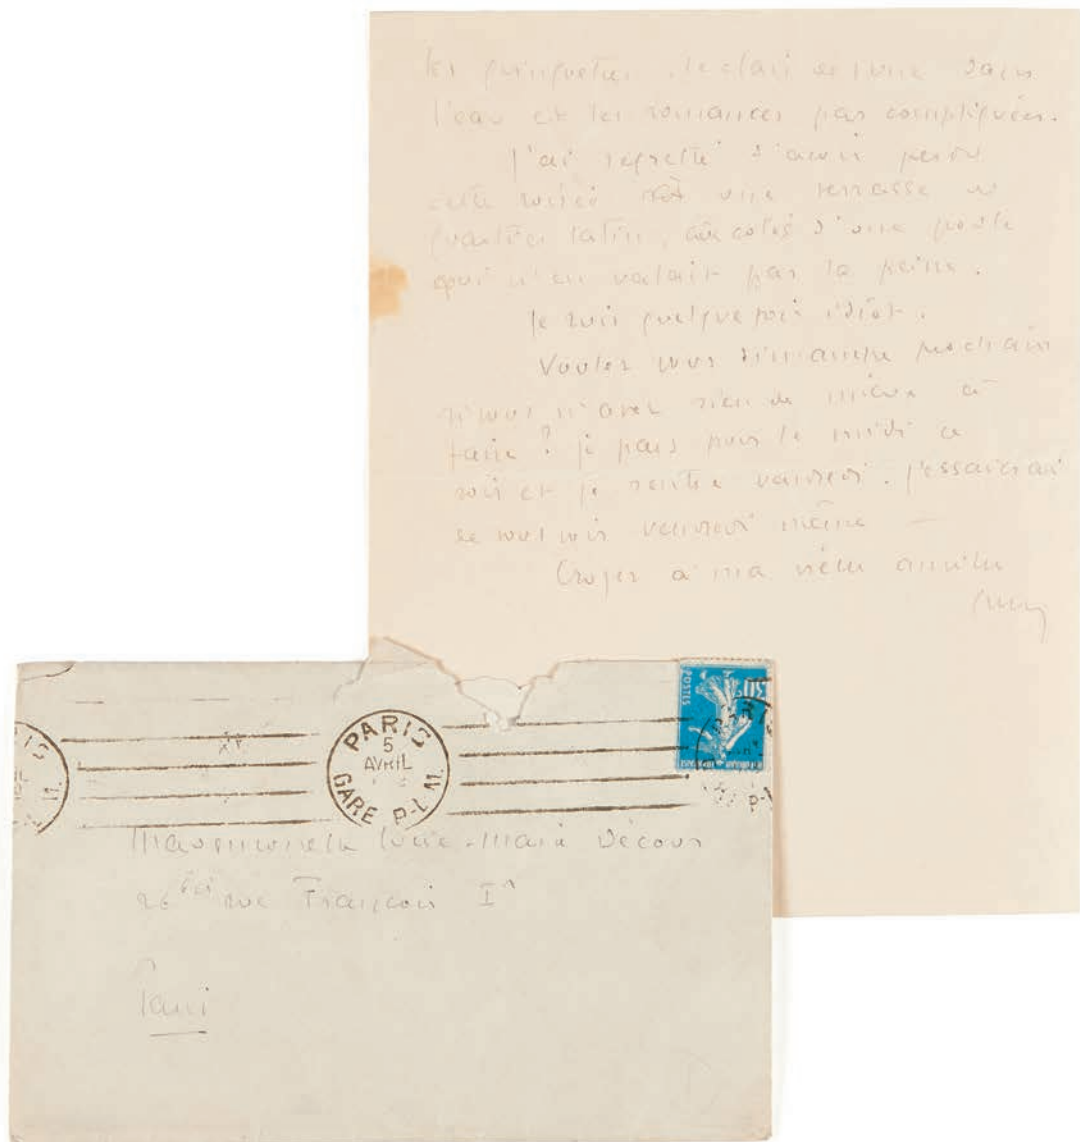 les guinguettes, le clair de lune dans
l'eau et les romances pas compliquées.
J'ai regretté d'avoir perdu
cette soirée à une terrasse du
quartier latin, aux cotés d'une poule
qui n'en valait pas la peine.
Je suis quelque fois idiot.
Voulez vous dimanche prochain
si vous n'avez rien de mieux à
faire? je pars pour le midi ce
soir et je rentre vendredi. J'essaierai
de vous voir vendredi même —
Croyez à ma vieille amitié
POSTES
PARIS
5
AVRIL
GARE P-L.M.
Mademoiselle Lucie-Marie Décour
26 bis rue François Ier
Paris